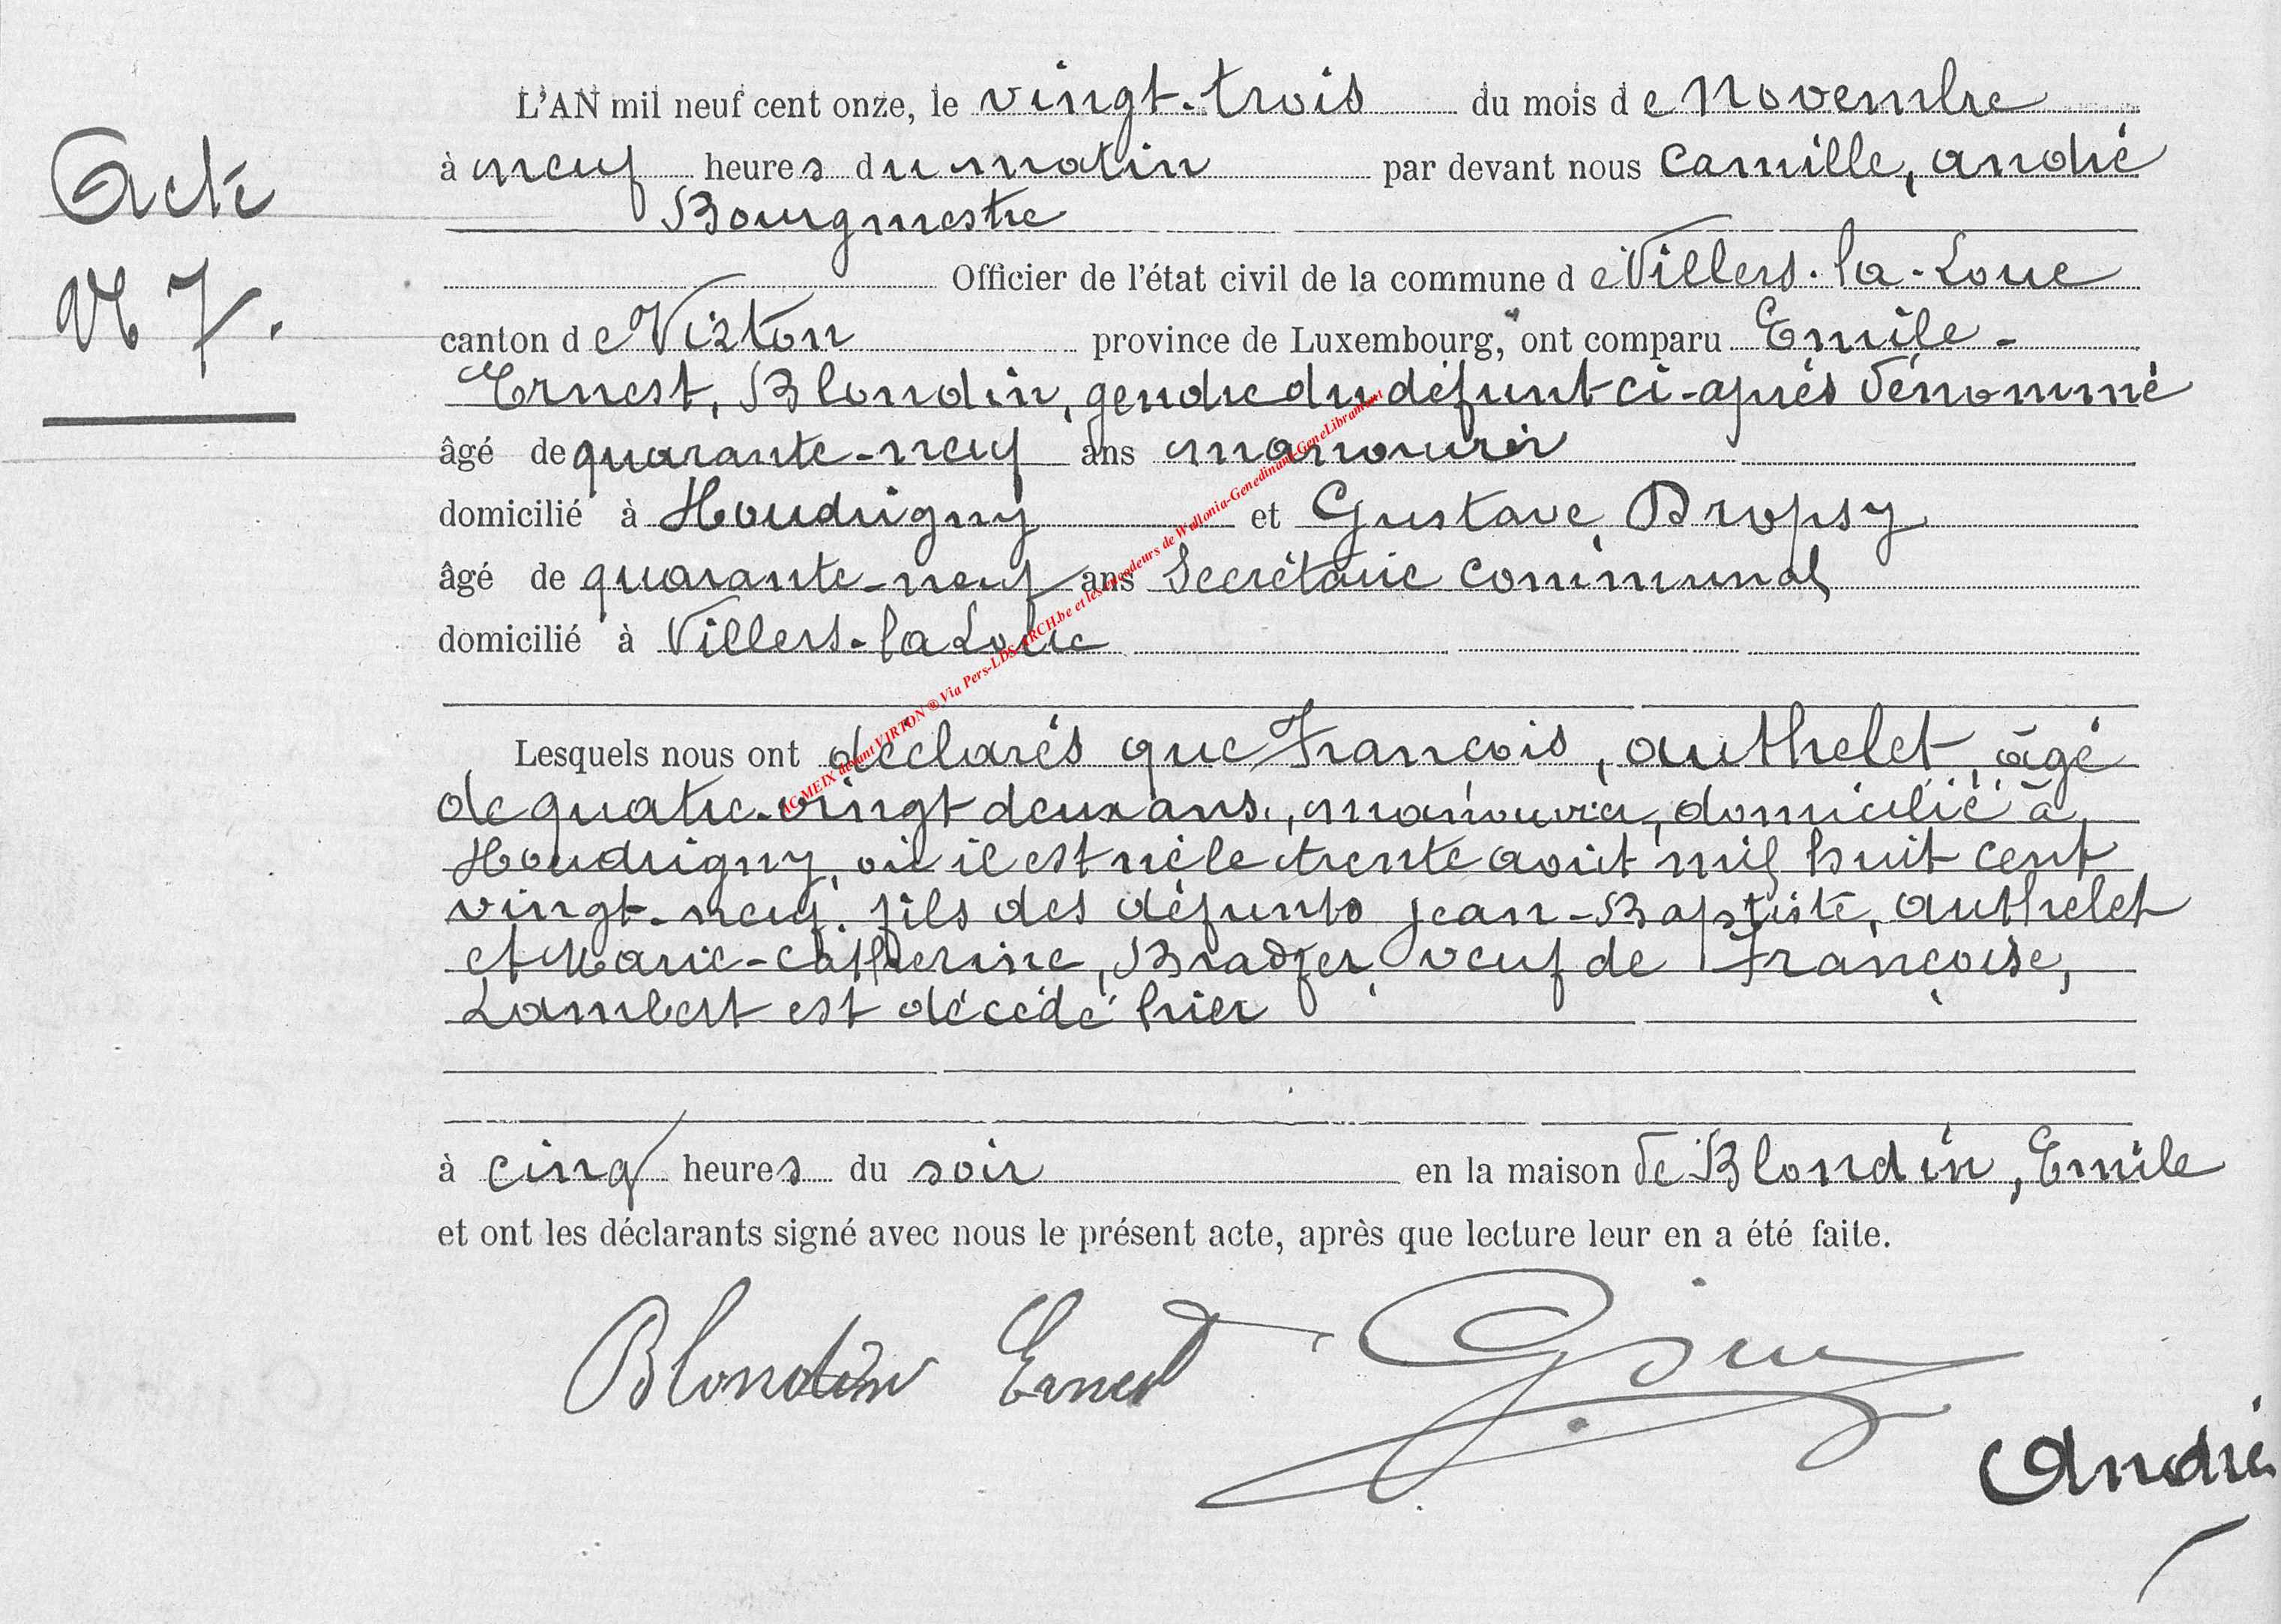 Acte
N° 7.
L'AN mil neuf cent onze, le vingt-trois du mois de novembre
à neuf heures du matin par devant nous Camille, André
Bourgmestre
Officier de l'état civil de la commune de Villers-la-Loue
canton de Virton province de Luxembourg, ont comparu Emile-
Ernest, Blondin, gendre du défunt ci-après dénommé
âgé de quarante-neuf ans manouvrier
domicilié à Houdrigny et Gustave Dropsy
âgé de quarante-neuf ans Secrétaire communal
domicilié à Villers-la Loue
Lesquels nous ont déclarés que François, Authelet, âgé
de quatre-vingt deux ans, manouvrier, domicilié à
Houdrigny, où il est né le trente août mil huit cent
vingt-neuf, fils des défunts Jean-Baptiste, Authelet
et Marie-Catherine, Bradfer, veuf de Françoise,
Lambert est décédé hier
à cinq heures du soir en la maison de Blondin, Emile
et ont les déclarants signé avec nous le présent acte, après que lecture leur en a été faite.
Blondin Ernest
André
AC MEIX devant VIRTON ® Via Pers-LDS-ARCH.be et les encodeurs de Wallonia-Genedinant-GeneLibramont